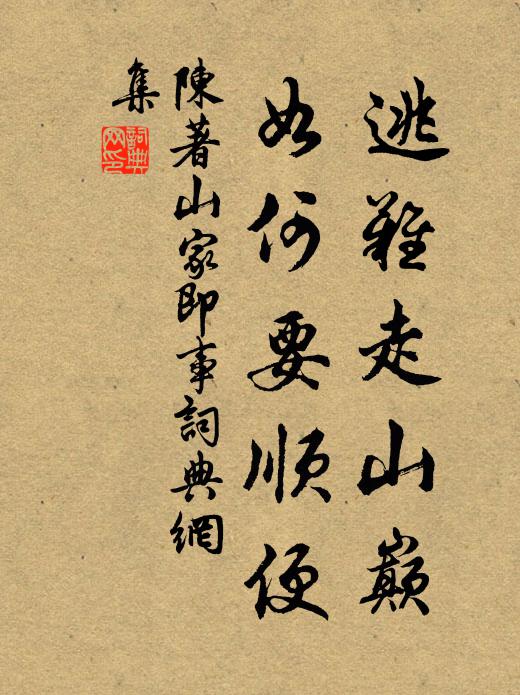 逃難走山巔
如何要順便
陳著山家即事詞典網
集
詞典網印